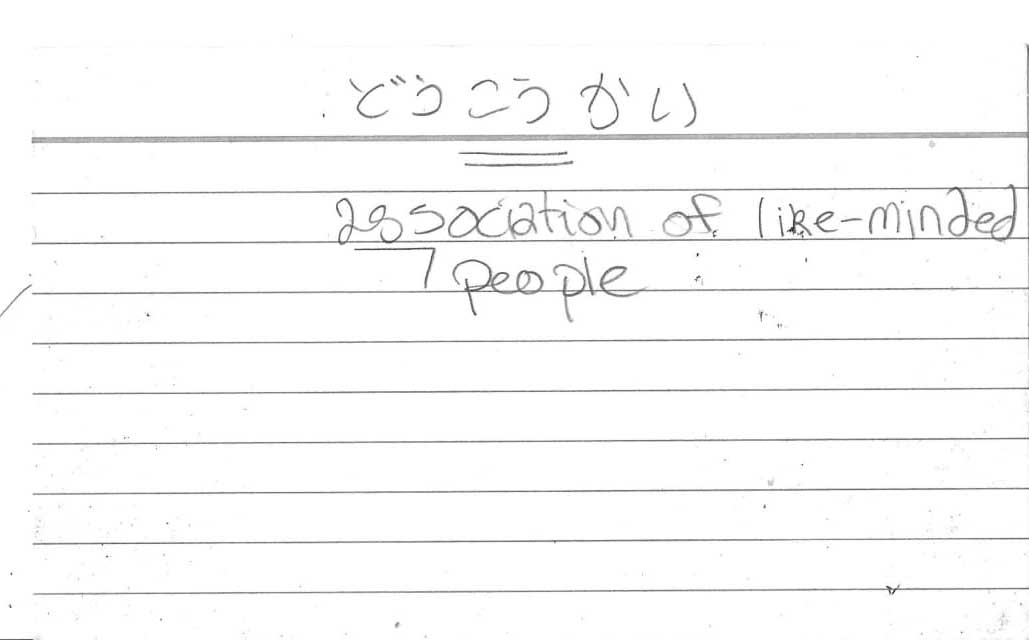 どうこうかい
association of like-minded
people